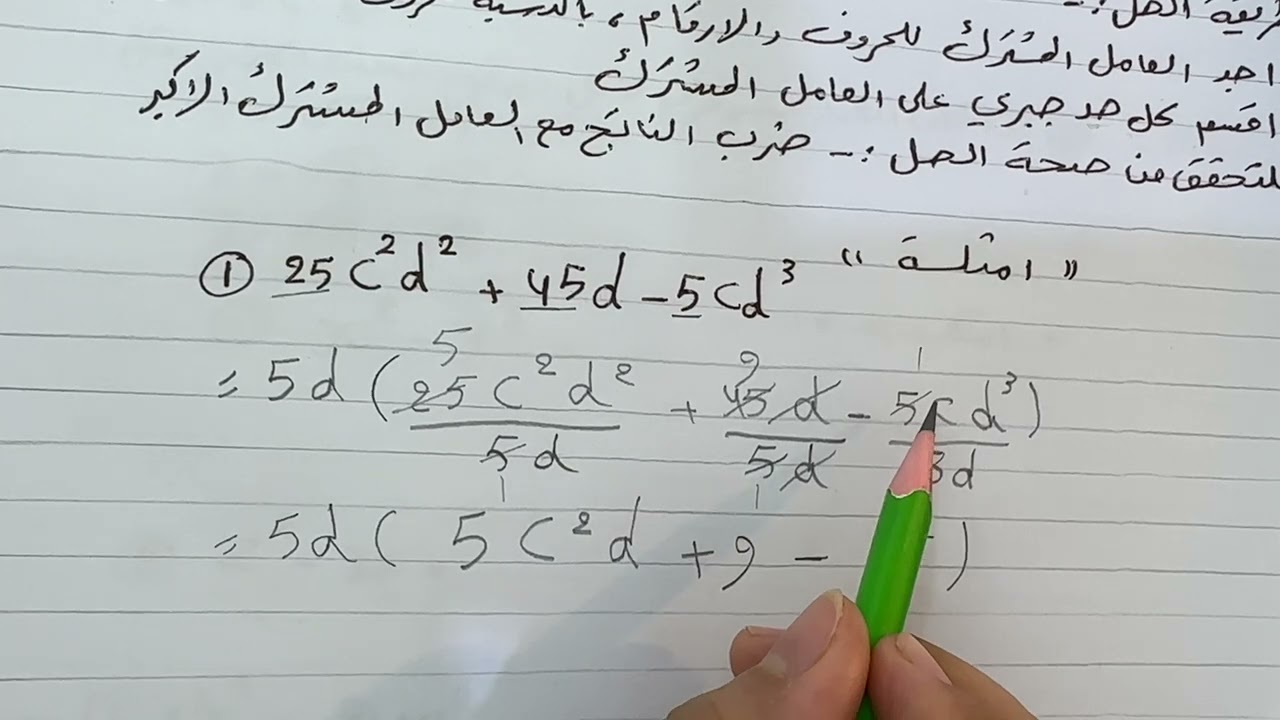 طريقة الحل :-
اجد العامل المشترك للحروف والارقام ، بالنسبة
اقسم كل حد جبري على العامل المشترك
للتحقق من صحة الحل :- ضرب الناتج مع العامل المشترك الاكبر
" امثلة "
① 25c²d² + 45d - 5cd³
= 5d ( 25c²d² / 5d + 45d / 5d - 5cd³ / 5d )
= 5d ( 5c²d + 9 - )